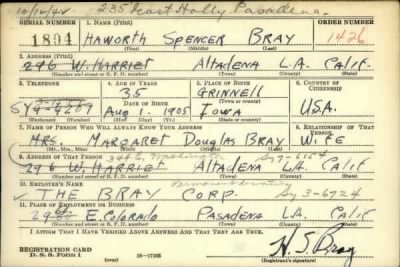 10/12/42 235 East Holly Pasadena.
SERIAL NUMBER 1. NAME (Print) ORDER NUMBER
1894 HAWORTH SPENCER BRAY 1426
(First) (Middle) (Last)
2. ADDRESS (Print)
296 W. HARRIET ALTADENA L.A. CALIF.
(Number and street or R. F. D. number) (Town) (County) (State)
3. TELEPHONE 4. AGE IN YEARS 5. PLACE OF BIRTH 6. COUNTRY OF CITIZENSHIP
35 GRINNELL
DATE OF BIRTH (Town or county)
SY 4-4269 AUG. 1, 1905 IOWA U.S.A.
(Exchange) (Number) (Mo.) (Day) (Yr.) (State or country)
7. NAME OF PERSON WHO WILL ALWAYS KNOW YOUR ADDRESS 8. RELATIONSHIP OF THAT PERSON
MRS. MARGARET DOUGLAS BRAY WIFE
(Mr., Mrs., Miss) (First) (Middle) (Last)
9. ADDRESS OF THAT PERSON
296 W. HARRIET ALTADENA L.A. CALIF
(Number and street or R. F. D. number) (Town) (County) (State)
10. EMPLOYER'S NAME
THE BRAY CORP. Sy 3-6724
11. PLACE OF EMPLOYMENT OR BUSINESS
E. COLORADO PASADENA L.A. CALIF
(Number and street or R. F. D. number) (Town) (County) (State)
I AFFIRM THAT I HAVE VERIFIED ABOVE ANSWERS AND THAT THEY ARE TRUE.
REGISTRATION CARD
D. S. S. Form 1 16—17105 H. S. Bray
(Registrant's signature)